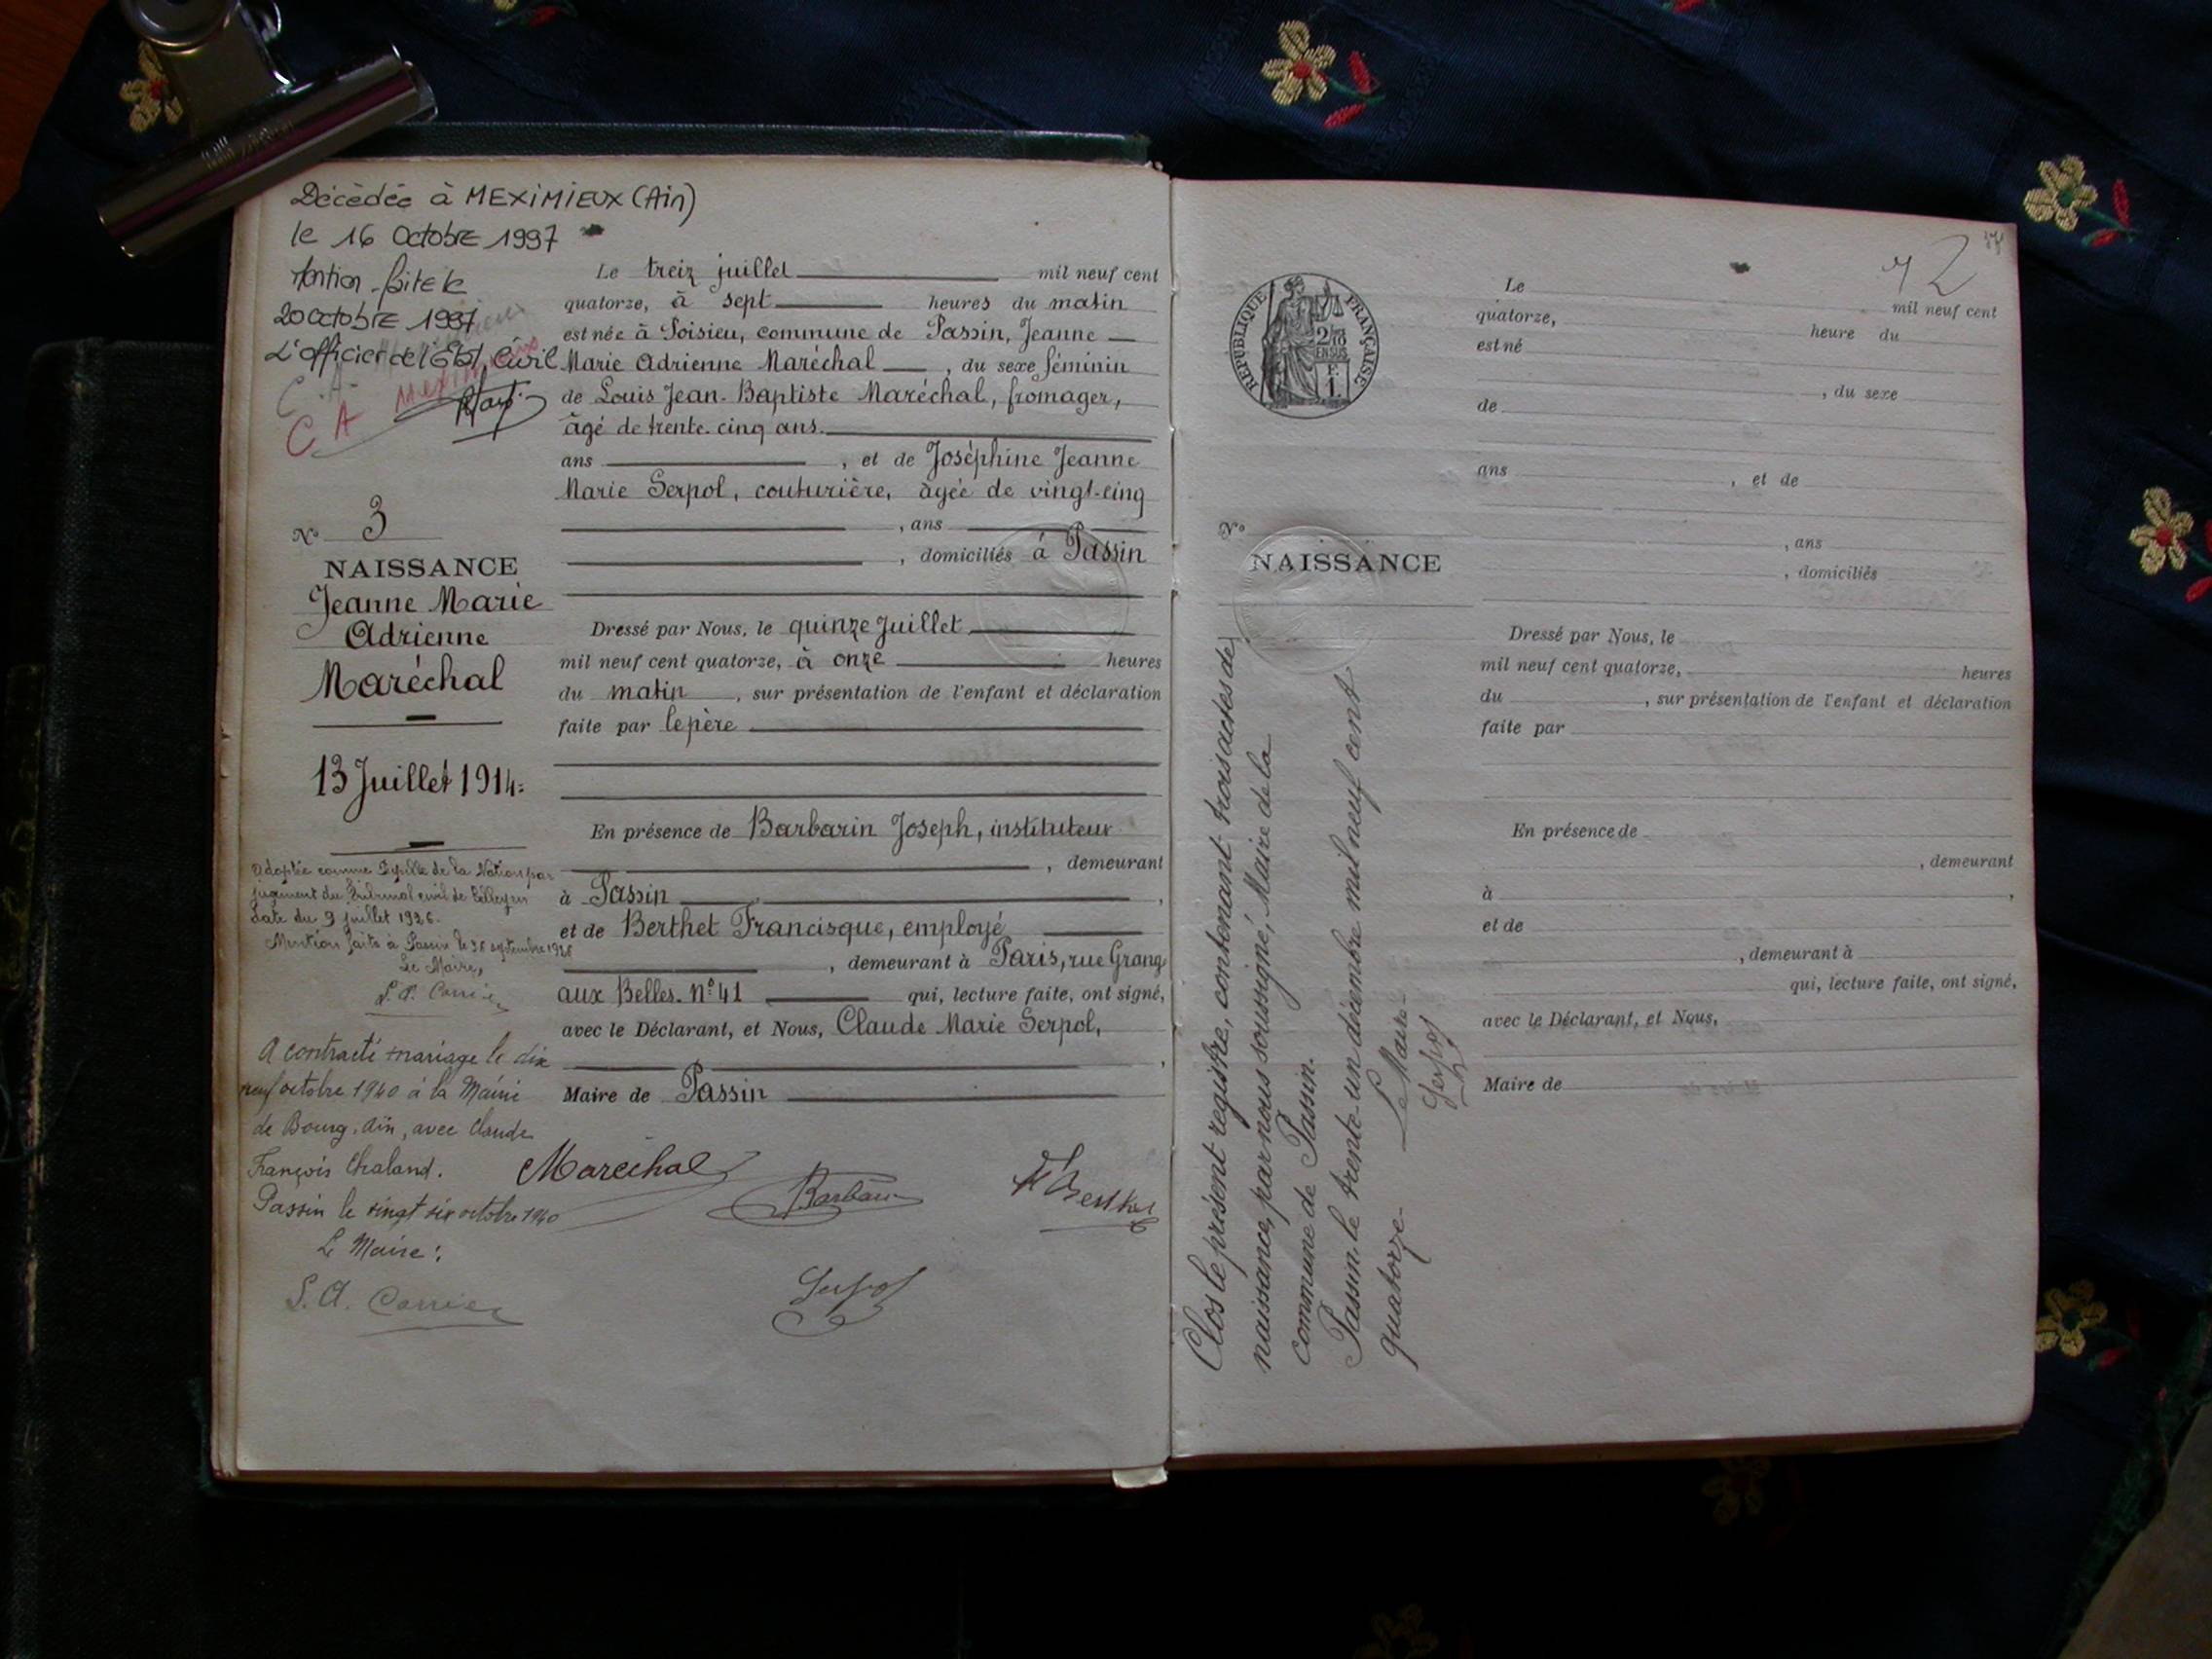 Décédée à MEXIMIEUX (Ain)
le 16 Octobre 1997
Mention faite le
20 octobre 1997
L'officier de l'Etat Civil
C A
C A Meximieux
N° 3
NAISSANCE
Jeanne Marie
Adrienne
Maréchal
13 Juillet 1914
Adoptée comme Pupille de la Nation par
jugement du Tribunal civil de Belley en
date du 9 juillet 1926.
Mention faite à Passin le septembre 1926
Le Maire,
A contracté mariage le dix
neuf octobre 1940 à la Mairie
de Bourg, Ain, avec Claude
François Chaland.
Passin le vingt six octobre 1940
Le Maire :
Le treiz juillet mil neuf cent
quatorze, à sept heures du matin
est née à Poisieu, commune de Passin, Jeanne
Marie Adrienne Maréchal , du sexe féminin
de Louis Jean-Baptiste Maréchal, fromager,
âgé de trente-cinq ans.
ans , et de Joséphine Jeanne
Marie Serpol, couturière, âgée de vingt-cinq
, ans
, domiciliés à Passin
Dressé par Nous, le quinze Juillet
mil neuf cent quatorze, à onze heures
du matin , sur présentation de l'enfant et déclaration
faite par le père
En présence de Barbarin Joseph, instituteur
, demeurant
à Passin ,
et de Berthet Francisque, employé
, demeurant à Paris, rue Grang
aux Belles. N° 41 qui, lecture faite, ont signé,
avec le Déclarant, et Nous, Claude Marie Serpol,
,
Maire de Passin
Maréchal
Barbarin
F Berthet
Serpol
72
RÉPUBLIQUE FRANÇAISE
2/10
EN SUS
F.
1.
N°
NAISSANCE
Le
mil neuf cent
quatorze, heure du
est né
, du sexe
de
ans , et de
, ans
, domiciliés
Dressé par Nous, le
mil neuf cent quatorze, heures
du , sur présentation de l'enfant et déclaration
faite par
En présence de
, demeurant
à ,
et de
, demeurant à
qui, lecture faite, ont signé,
avec le Déclarant, et Nous,
Maire de
Clos le présent registre, contenant trois actes de
naissance, par nous soussigné, Maire de la
commune de Passin.
Passin le trente-un décembre mil neuf cent
quatorze.
Le Maire
Serpol